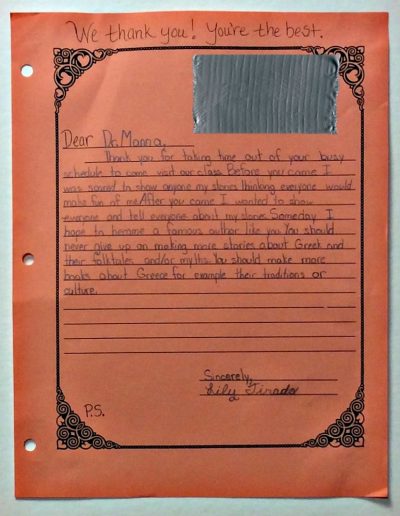 We thank you! You're the best.
Dear Dr. Manna,
Thank you for taking time out of your busy
schedule to come visit our class. Before you came I
was scared to show anyone my stories thinking everyone would
make fun of me. After you came I wanted to show
everyone and tell everyone about my stories. Someday I
hope to become a famous author like you. You should
never give up on making more stories about Greek and
their folktales and/or myths. You should make more
books about Greece for example their traditions or
culture.
Sincerely,
Lily Tirado
P.S.